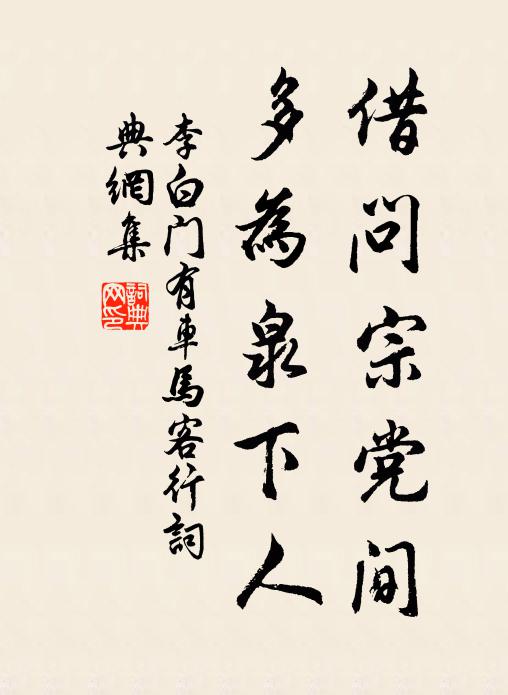 借问宗党间
多為泉下人
李白门有車馬客行詞
典網集
詞典
网印